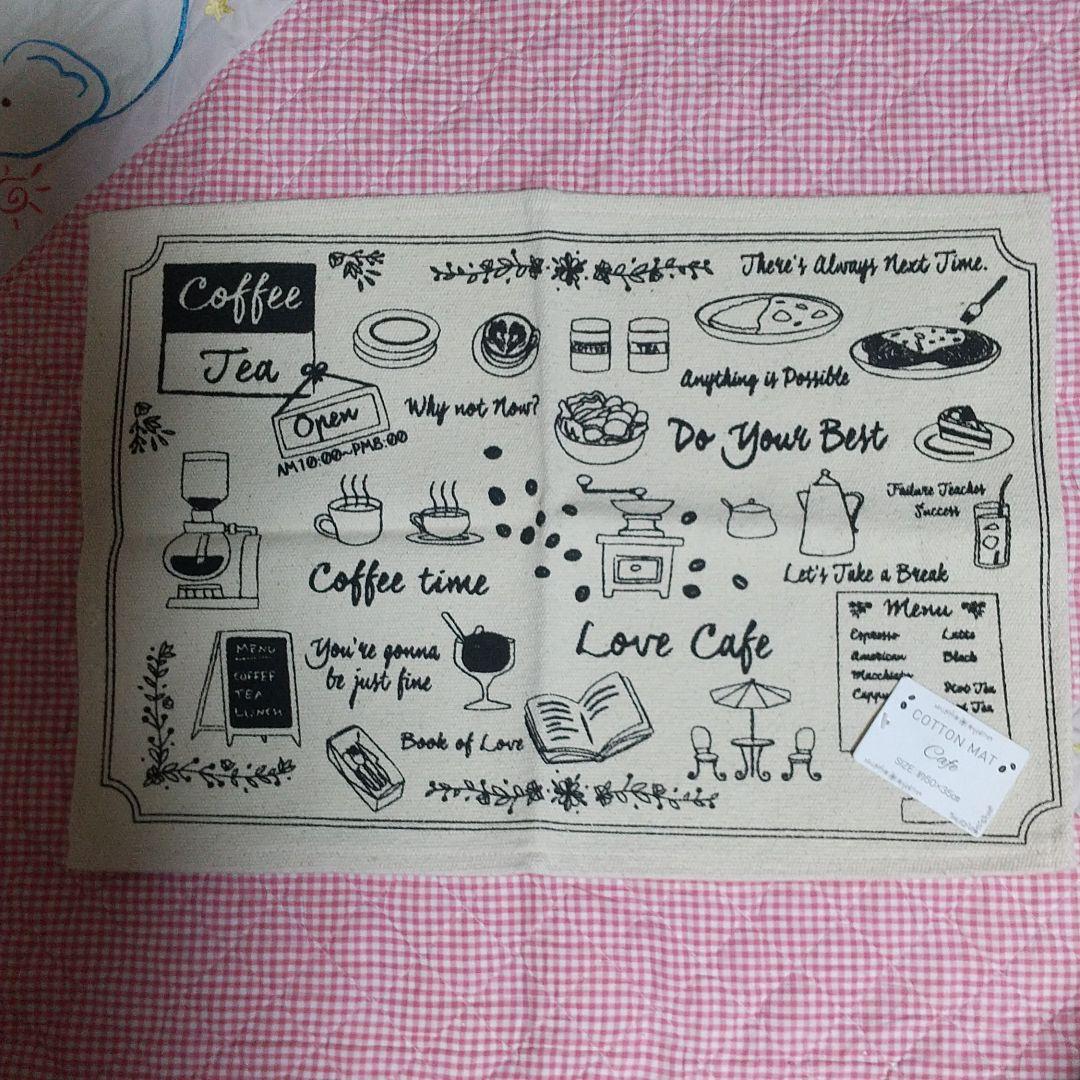 There's Always Next Time.
Coffee
Tea
COFFEE
TEA
Anything is Possible
Open
AM10:00~PM8:00
Why not Now?
Do Your Best
Failure Teaches
Success
Coffee time
Let's Take a Break
Menu
Espresso Latte
American Black
Macchiato
MENU
COFFEE
TEA
LUNCH
You're gonna
be just fine
Love Cafe
Book of Love
COTTON MAT
Cafe